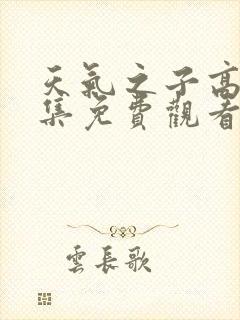 天氣之子高
集免費觀看
雲長歌